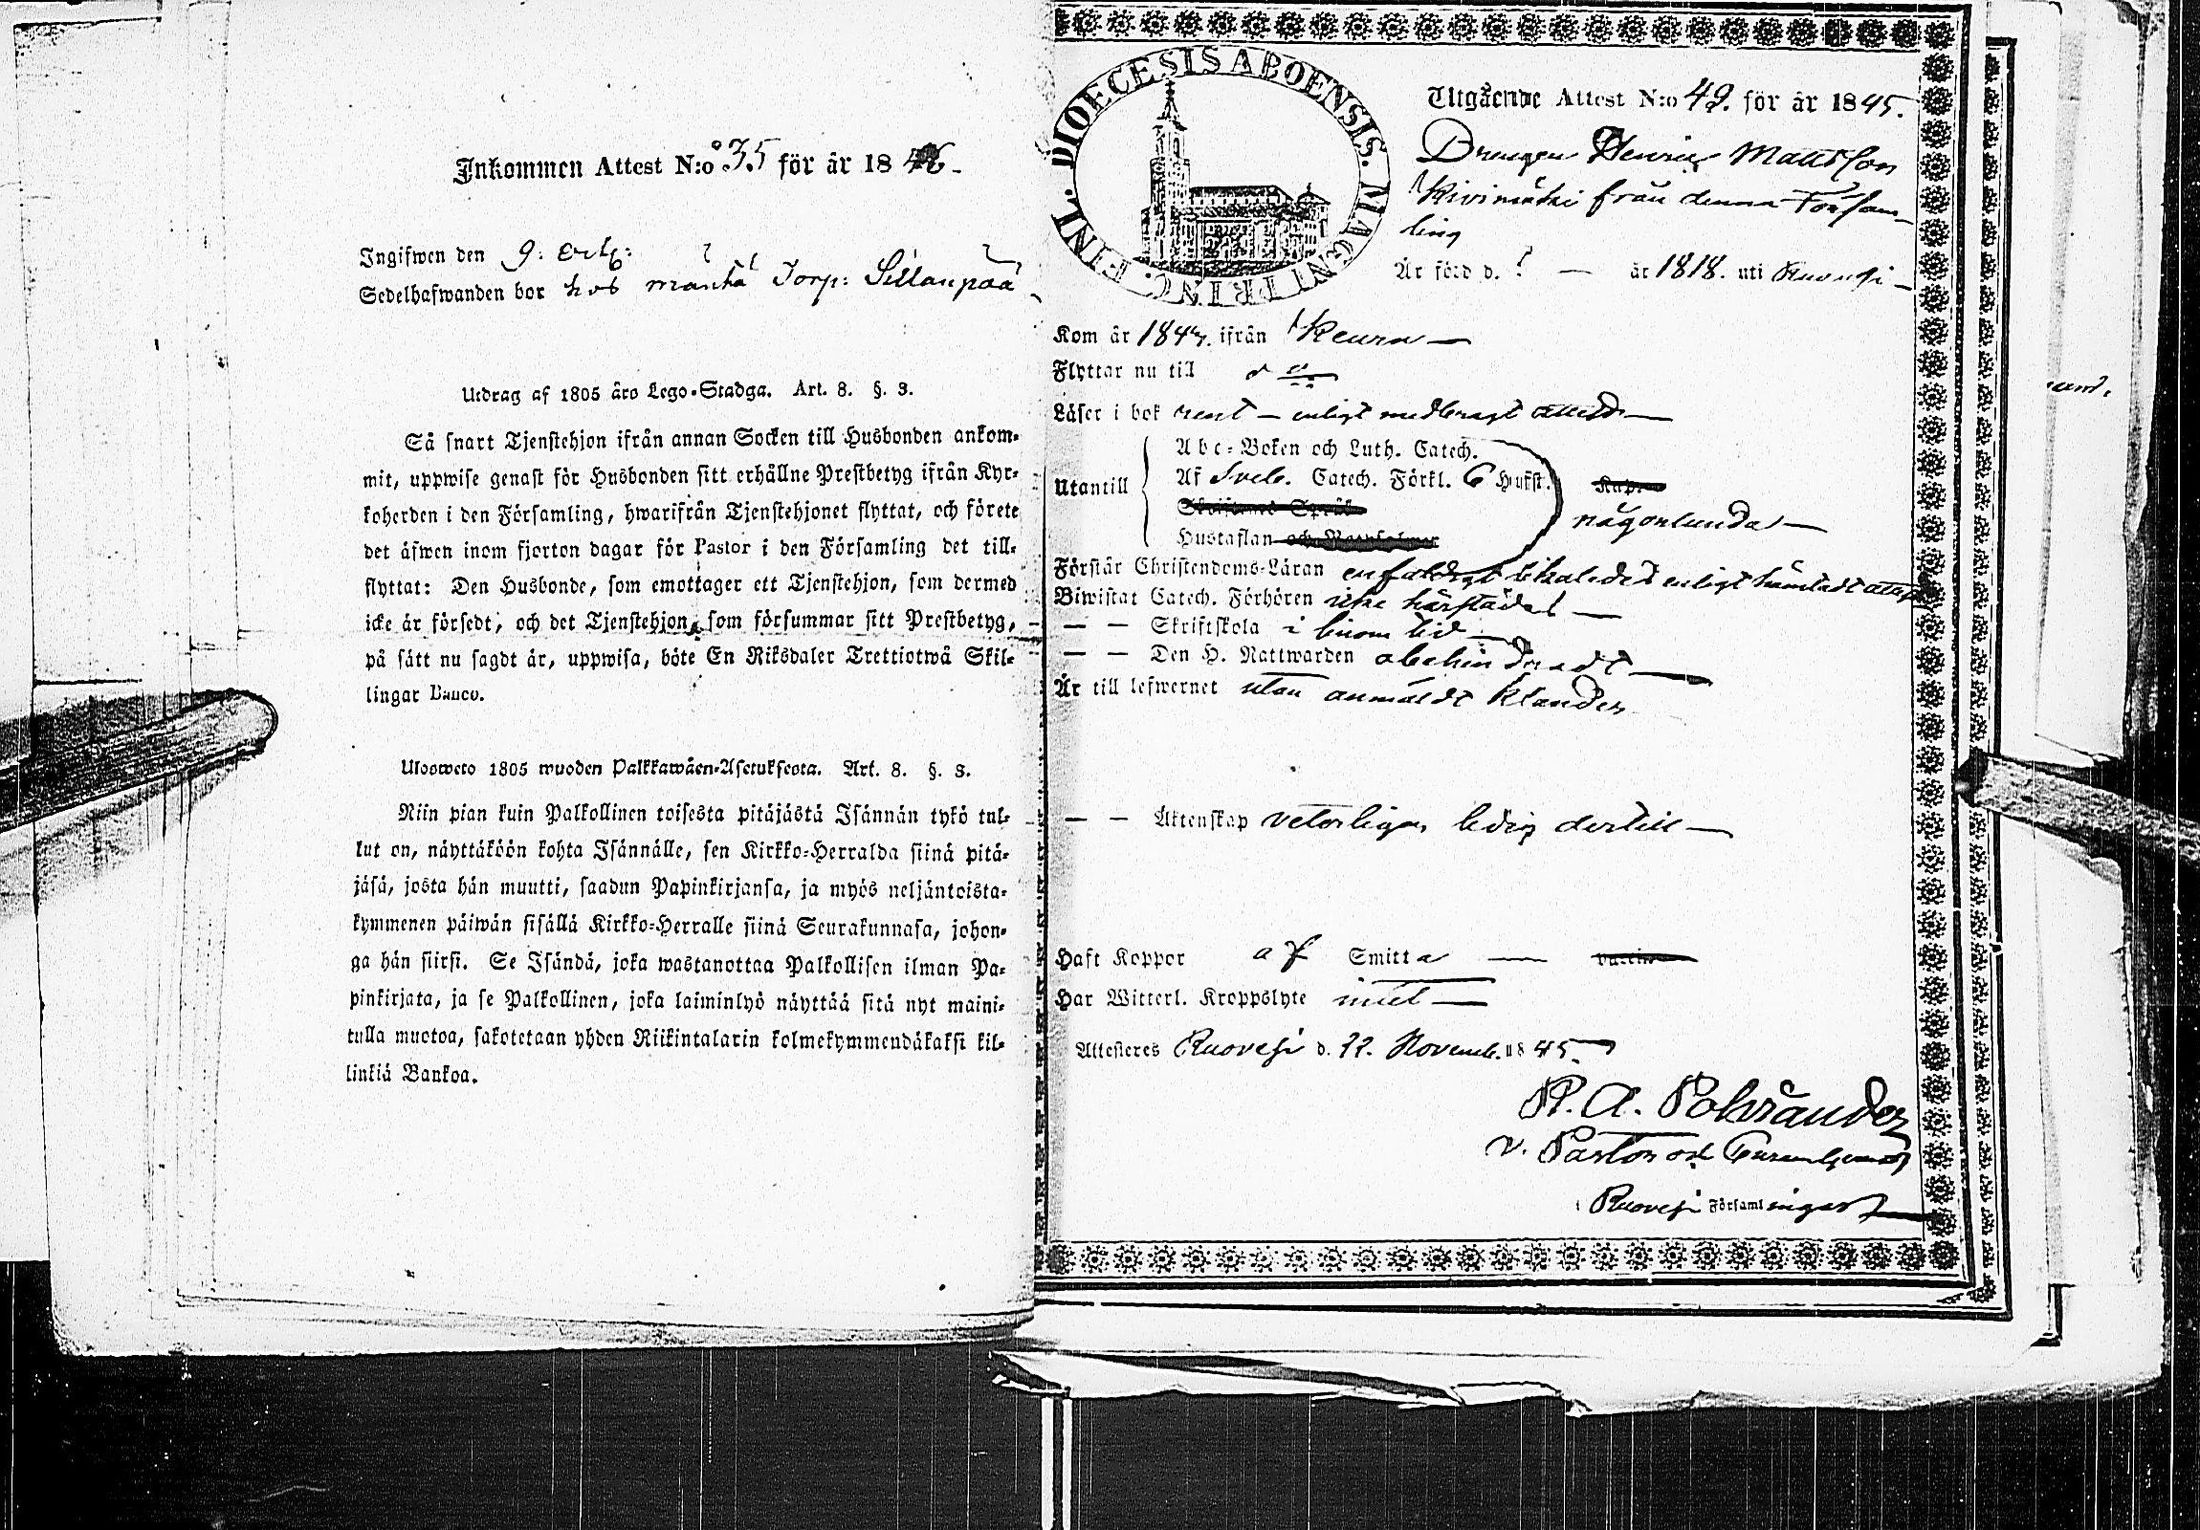 Inkommen Attest N:o 35 för år 1846.
Ingifwen den 9.
Sedelhafwanden bor hos Torp: Sillanpää
Utdrag af 1805 års Lego-Stadga. Art. 8. §. 3.
Så snart Tjenstehjon ifrån annan Socken till Husbonden ankom-
mit, uppwise genast för Husbonden sitt erhållne Prestbetyg ifrån Kyr-
koherden i den Församling, hwarifrån Tjenstehjonet flyttat, och förete
det äfwen inom fjorton dagar för Pastor i den Församling det till-
flyttat: Den Husbonde, som emottager ett Tjenstehjon, som dermed
icke är försedt, och det Tjenstehjon, som försummar sitt Prestbetyg,
på sätt nu sagdt är, uppwisa, böte En Riksdaler Trettiotwå Skil-
lingar Banco.
Ulosweto 1805 wuoden Palkkawäen-Asetuksesta. Art. 8. §. 3.
Niin pian kuin Palkollinen toisesta pitäjästä Isännän tykö tul-
lut on, näyttäköön kohta Isännälle, sen Kirkko-Herralda siinä pitä-
jäsä, josta hän muutti, saadun Papinkirjansa, ja myös neljäntoista-
kymmenen päiwän sisällä Kirkko-Herralle siinä Seurakunnasa, johon-
ga hän siirsi. Se Isändä, joka wastanottaa Palkollisen ilman Pa-
pinkirjata, ja se Palkollinen, joka laiminlyö näyttää sitä nyt maini-
tulla muotoa, sakotetaan yhden Riikintalarin kolmekymmendäkaksi kil-
linkiä Bankoa.
FINL. DIOECESIS ABOENSIS. MAGNI PRINC.
Utgående Attest N:o 49. för år 1845.
Drengen Henric Mattsson
Kivimäki från denna Försam-
ling
Är född d. ? — år 1818. uti Ruovesi —
Kom år 1844. ifrån Keuru —
Flyttar nu till
Läser i bok rent — enligt medbragt attest —
Utantill
Abc-Boken och Luth. Catech.
Af Sveb. Catech. Förkl. 6 Hufst.
Hustaflan
någorlunda —
Förstår Christendoms-Läran enfaldigt enligt attest
Biwistat Catech. Förhören icke härstädes —
— — Skriftskola i
— — Den H. Nattwarden obehindradt —
Är till lefwernet utan anmäldt klander
— — Äktenskap veterligen ledig dertill —
Haft Koppor af Smitta —
Har Witterl. Kroppslyte intet —
Attesteres Ruovesi d. 22. Novemb. 1845.
v. Pastor
i Ruovesi Församlingar